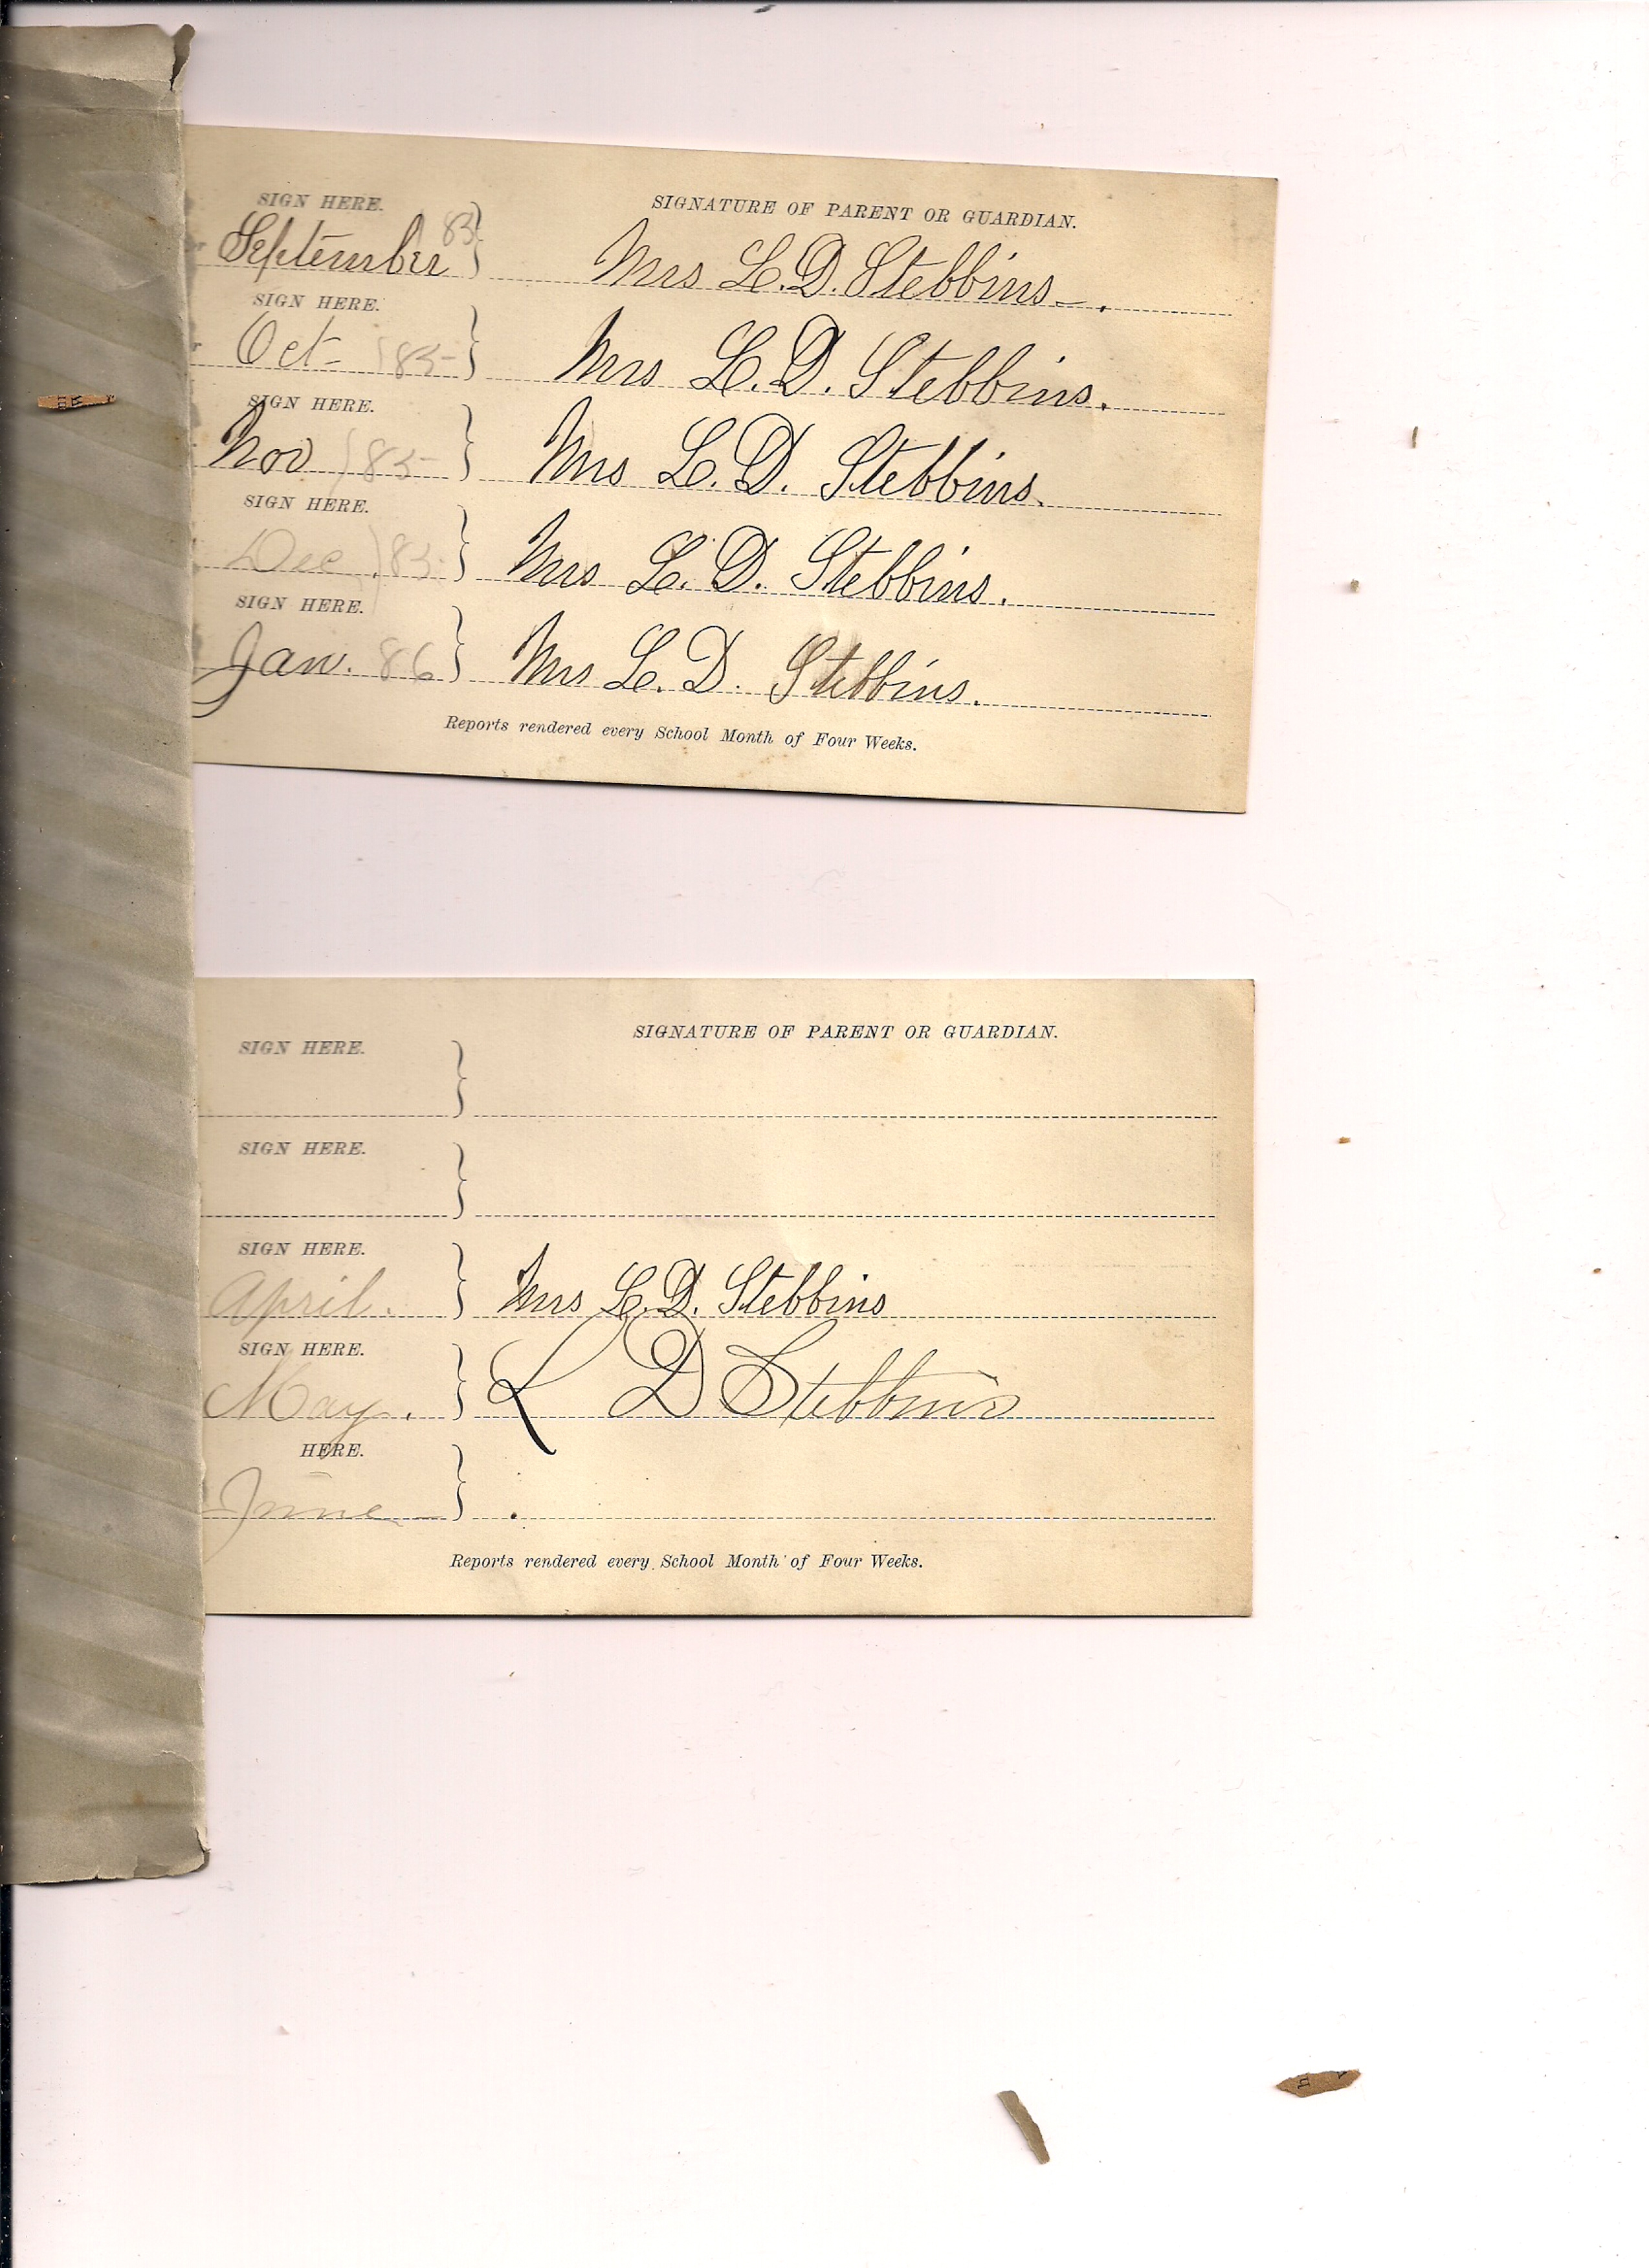 SIGN HERE. SIGNATURE OF PARENT OR GUARDIAN.
September 85 Mrs L. D. Stebbins.
SIGN HERE.
Oct 85 Mrs L. D. Stebbins.
SIGN HERE.
Nov 85 Mrs L. D. Stebbins.
SIGN HERE.
Dec 85 Mrs L. D. Stebbins.
SIGN HERE.
Jan. 86 Mrs L. D. Stebbins.
Reports rendered every School Month of Four Weeks.
SIGNATURE OF PARENT OR GUARDIAN.
SIGN HERE.
SIGN HERE.
SIGN HERE.
April. Mrs L. D. Stebbins
SIGN HERE.
May. L D Stebbins
HERE.
June
Reports rendered every School Month of Four Weeks.